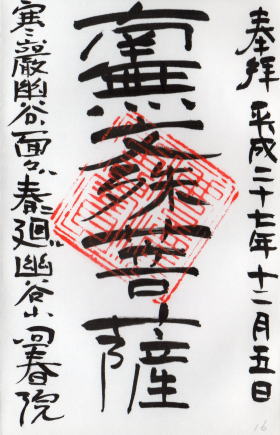 奉拝 平成二十七年十二月五日
南無文殊菩薩
寒巌幽谷面々春廻幽谷山回春院
16